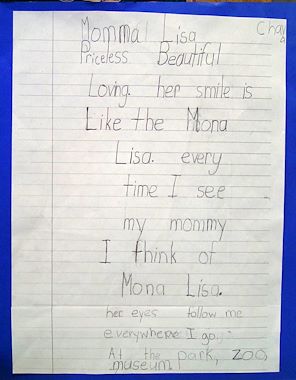 Momma Lisa
Priceless Beautiful
Loving. her smile is
Like the Mona
Lisa. every
time I see
my mommy
I think of
Mona Lisa.
her eyes follow me
everywhere I go.
At the park, zoo,
museum!